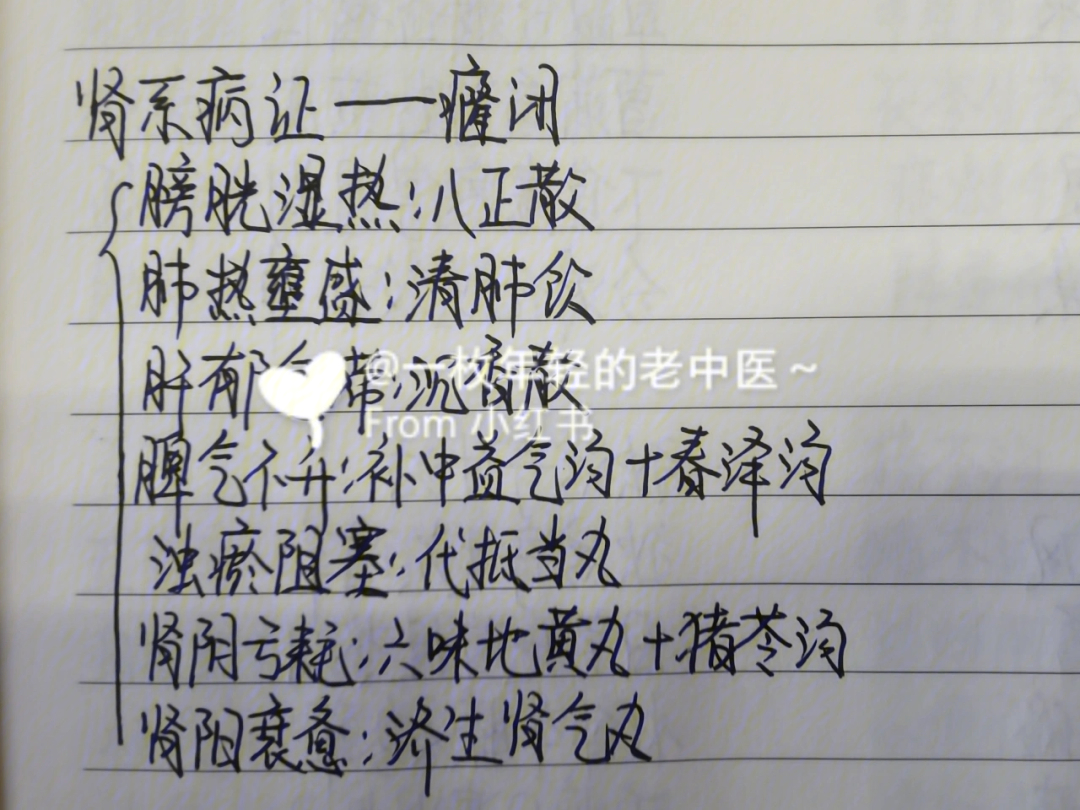 肾系病证——癃闭
膀胱湿热:八正散
肺热壅盛:清肺饮
肝郁气滞:沉香散
@一枚年轻的老中医~
From 小红书
脾气不升:补中益气汤+春泽汤
浊瘀阻塞:代抵当丸
肾阴亏耗:六味地黄丸+猪苓汤
肾阳衰惫:济生肾气丸